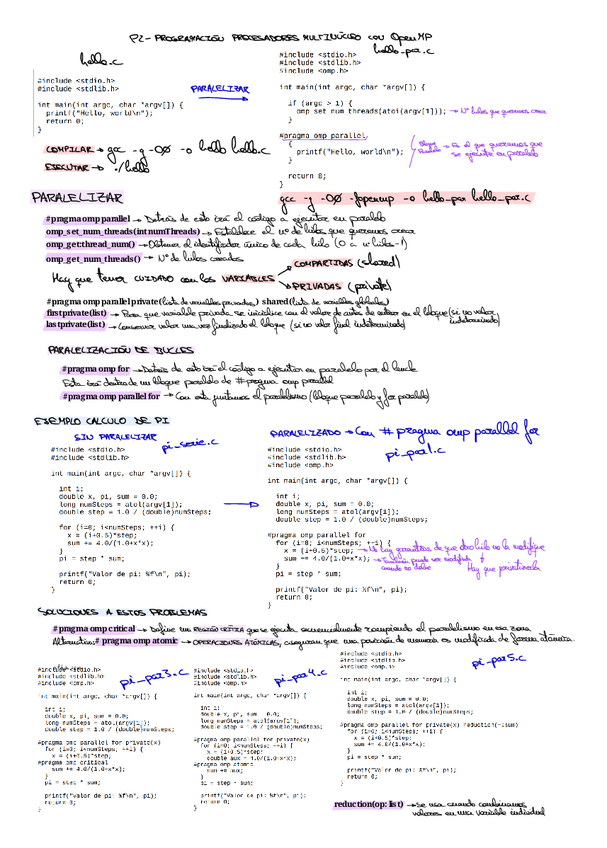 P2- PROGRAMACIÓN PROCESADORES MULTINÚCLEO CON OpenMP
hello.c
#include <stdio.h>
#include <stdlib.h>
int main(int argc, char *argv[]) {
printf("Hello, world\n");
return 0;
}
PARALELIZAR
hello_par.c
#include <stdio.h>
#include <stdlib.h>
#include <omp.h>
int main(int argc, char *argv[]) {
if (argc > 1) {
omp_set_num_threads(atoi(argv[1])); → Nº hilos que queremos crear
}
#pragma omp parallel
{
printf("Hello, world\n");
}
return 0;
}
Bloque Paralelo → Es el que queremos que se ejecute en paralelo
COMPILAR → gcc -g -O0 -o hello hello.c
EJECUTAR → ./hello
gcc -g -O0 -fopenmp -o hello_par hello_par.c
PARALELIZAR
#pragma omp parallel → Detrás de esto irá el código a ejecutar en paralelo
omp_set_num_threads(int numThreads) → Establece el nº de hilos que queremos crear
omp_get:thread_num() → Obtener el identificador único de cada hilo (0 a nº hilos-1)
omp_get_num_threads() → Nº de hilos creados
Hay que tener CUIDADO con las VARIABLES
COMPARTIDAS (shared)
PRIVADAS (private)
#pragma omp parallel private(lista de variables privadas) shared(lista de variables globales)
firstprivate(list) → Para que variable privada se inicialice con el valor de antes de entrar en el bloque (si no valor indeterminado)
lastprivate(list) → Conservar valor una vez finalizado el bloque (si no valor final indeterminado)
PARALELIZACIÓN DE BUCLES
#pragma omp for → Detrás de esto irá el código a ejecutar en paralelo por el bucle
Esta irá dentro de un bloque paralelo de #pragma omp parallel
#pragma omp parallel for → Con esta juntamos el paralelismo (bloque paralelo y for paralelo)
EJEMPLO CALCULO DE PI
SIN PARALELIZAR
pi_serie.c
#include <stdio.h>
#include <stdlib.h>
int main(int argc, char *argv[]) {
int i;
double x, pi, sum = 0.0;
long numSteps = atol(argv[1]);
double step = 1.0 / (double)numSteps;
for (i=0; i<numSteps; ++i) {
x = (i+0.5)*step;
sum += 4.0/(1.0+x*x);
}
pi = step * sum;
printf("Valor de pi: %f\n", pi);
return 0;
}
PARALELIZADO → Con #pragma omp parallel for
pi_par1.c
#include <stdio.h>
#include <stdlib.h>
#include <omp.h>
int main(int argc, char *argv[]) {
int i;
double x, pi, sum = 0.0;
long numSteps = atol(argv[1]);
double step = 1.0 / (double)numSteps;
#pragma omp parallel for
for (i=0; i<numSteps; ++i) {
x = (i+0.5)*step; → No hay garantías de que otro hilo no la modifique
sum += 4.0/(1.0+x*x); → También puede ser modificada cuando no debe
Hay que privatizarla
}
pi = step * sum;
printf("Valor de pi: %f\n", pi);
return 0;
}
SOLUCIONES A ESTOS PROBLEMAS
#pragma omp critical → Define una REGIÓN CRÍTICA que se ejecuta secuencialmente rompiendo el paralelismo en esa zona
Alternativa: #pragma omp atomic → OPERACIONES ATÓMICAS, aseguran que una posición de memoria es modificada de forma atómica
pi_par3.c
#include <stdio.h>
#include <stdlib.h>
#include <omp.h>
int main(int argc, char *argv[]) {
int i;
double x, pi, sum = 0.0;
long numSteps = atol(argv[1]);
double step = 1.0 / (double)numSteps;
#pragma omp parallel for private(x)
for (i=0; i<numSteps; ++i) {
x = (i+0.5)*step;
#pragma omp critical
sum += 4.0/(1.0+x*x);
}
pi = step * sum;
printf("Valor de pi: %f\n", pi);
return 0;
}
pi_par4.c
#include <stdio.h>
#include <stdlib.h>
#include <omp.h>
int main(int argc, char *argv[]) {
int i;
double x, pi, sum = 0.0;
long numSteps = atol(argv[1]);
double step = 1.0 / (double)numSteps;
#pragma omp parallel for private(x)
for (i=0; i<numSteps; ++i) {
x = (i+0.5)*step;
double aux = 4.0/(1.0+x*x);
#pragma omp atomic
sum += aux;
}
pi = step * sum;
printf("Valor de pi: %f\n", pi);
return 0;
}
pi_par5.c
#include <stdio.h>
#include <stdlib.h>
#include <omp.h>
int main(int argc, char *argv[]) {
int i;
double x, pi, sum = 0.0;
long numSteps = atol(argv[1]);
double step = 1.0 / (double)numSteps;
#pragma omp parallel for private(x) reduction(+:sum)
for (i=0; i<numSteps; ++i) {
x = (i+0.5)*step;
sum += 4.0/(1.0+x*x);
}
pi = step * sum;
printf("Valor de pi: %f\n", pi);
return 0;
}
reduction(op: list) → Se usa cuando combinamos valores en una variable individual